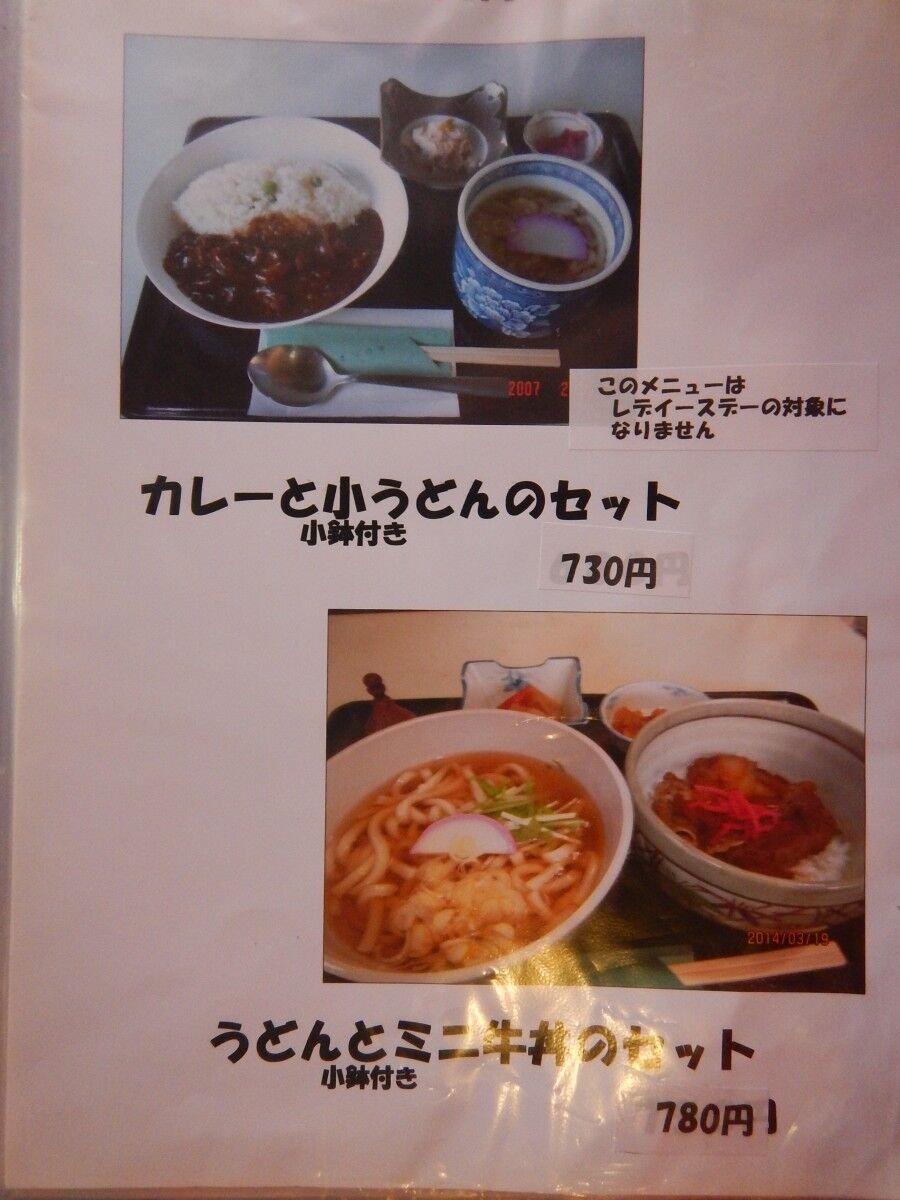 2007 2
このメニューは
レデイースデーの対象に
なりません
カレーと小うどんのセット
小鉢付き
730円
2014/03/19
うどんとミニ牛丼のセット
小鉢付き
780円